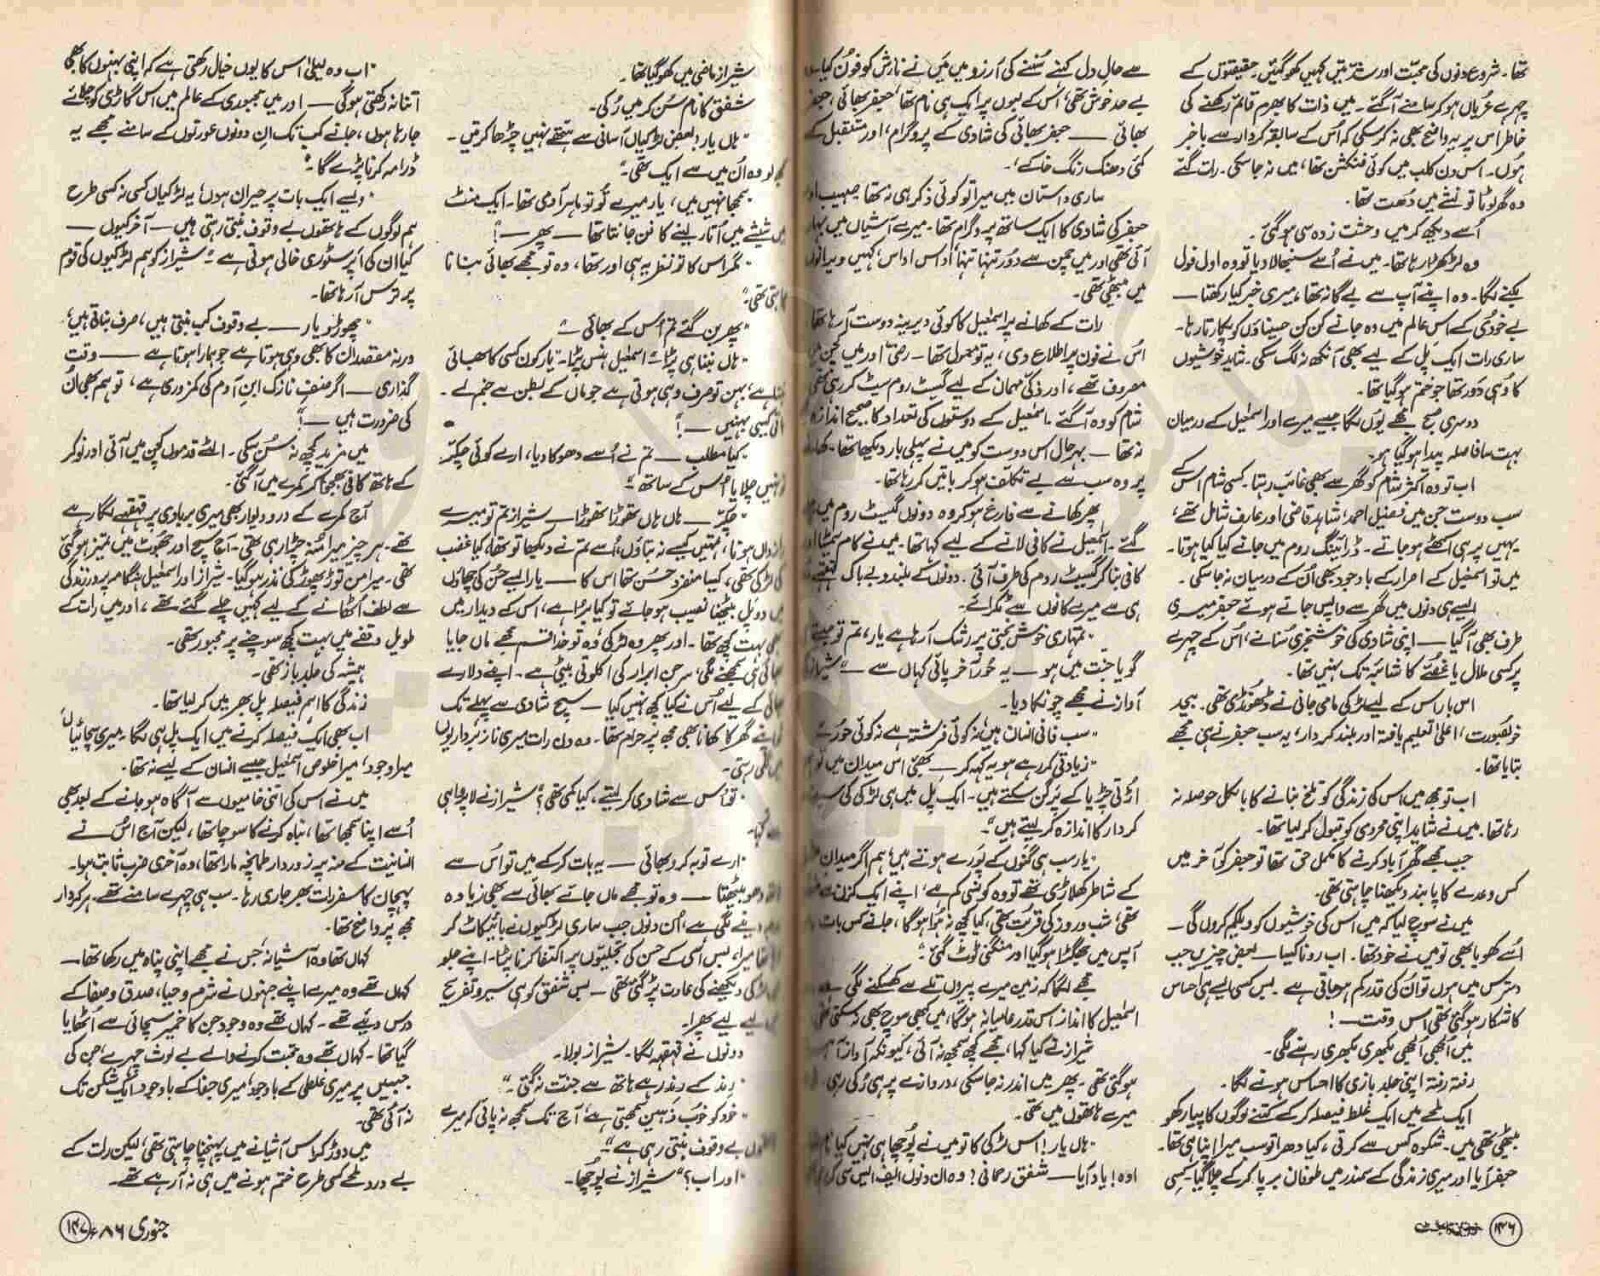 تھا۔ شروع دنوں کی محبت اور شدتیں کہیں کھو گئیں۔ حقیقتوں کے
چہرے عریاں ہو کر سامنے آ گئے۔ میں ذات کا بھرم قائم رکھنے کی
خاطر اس پر یہ واضح بھی نہ کر سکی کہ اُس کے سابقہ کردار سے باخبر
ہوں۔ اس دن کلب میں کوئی فنکشن تھا، میں نہ جا سکی۔ رات گئے
وہ گھر لوٹا تو نشے میں دھت تھا۔
اُسے دیکھ کر میں وحشت زدہ سی ہو گئی۔
وہ لڑکھڑا رہا تھا۔ میں نے اُسے سنبھالا دیا تو وہ اول فول
بکنے لگا۔ وہ اپنے آپ سے بے گانہ تھا، میری خبر کیا رکھتا —
بے خودی کے اس عالم میں وہ جانے کن کن حسیناؤں کو پکارتا رہا۔
ساری رات ایک پل کے لیے بھی آنکھ نہ لگ سکی۔ شاید خوشیوں
کا وہی دور تھا جو ختم ہو گیا تھا۔
دوسری صبح مجھے یوں لگا جیسے میرے اور اسمٰعیل کے درمیان
بہت سا فاصلہ پیدا ہو گیا ہو۔
اب تو وہ اکثر شام کو گھر سے بھی غائب رہتا۔ کسی شام اس کے
سب دوست جن میں فضیل احمد، شاہد قاضی اور عارف شامل تھے،
یہیں پر ہی اکٹھے ہو جاتے۔ ڈرائینگ روم میں جانے کیا کیا ہوتا۔
میں تو اسمٰعیل کے اصرار کے باوجود بھی اُن کے درمیان نہ جا سکی۔
ایسے ہی دنوں میں گھر سے واپس جاتے ہوئے جعفر میری
طرف بھی آ گیا — اپنی شادی کی خوشخبری سُنانے، اُس کے چہرے
پر کسی ملال یا غصّے کا شائبہ تک نہیں تھا۔
اس بار اس کے لیے لڑکی مامی جانی نے ڈھونڈی تھی۔ بیحد
خوبصورت، اعلیٰ تعلیم یافتہ اور بلند کردار، یہ سب جعفر نے ہی مجھے
بتایا تھا۔
اب تو مجھ میں اس کی زندگی کو تلخ بنانے کا بالکل حوصلہ نہ
رہا تھا۔ میں نے شاید اپنی محرومی کو قبول کر لیا تھا۔
جب مجھے گھر آباد کرنے کا مکمل حق تھا تو جعفر کو آخر میں
کس وعدے کا پابند دیکھنا چاہتی تھی۔
میں نے سوچ لیا کہ میں اس کی خوشیوں کو ویلکم کروں گی —
اُسے کھویا بھی تو میں نے خود تھا۔ اب رونا کیسا — بعض چیزیں جب
دسترس میں ہوں تو اُن کی قدر کم ہو جاتی ہے۔ بس کسی ایسے ہی احساس
کا شکار ہو گئی تھی اس وقت — !
میں اُلجھی اُلجھی بکھری بکھری رہنے لگی۔
رفتہ رفتہ اپنی جلد بازی کا احساس ہونے لگا۔
ایک لمحے میں ایک غلط فیصلہ کر کے کتنے لوگوں کا پیار کھو
بیٹھی تھی میں۔ شکوہ کس سے کرتی، کیا دھرا تو سب میرا اپنا ہی تھا۔
جعفر آیا اور میری زندگی کے سمندر میں طوفان برپا کر کے چلا گیا۔ کسی
۱۴۶
سے حالِ دل کہنے سُننے کی آرزو میں میں نے نازش کو فون کیا۔
بے حد خوش تھی، اُس کے لبوں پر ایک ہی نام تھا جعفر بھائی، جعفر
بھائی — جعفر بھائی کی شادی کے پروگرام، اور مستقبل کے
کئی دھنک رنگ خاکے،
ساری داستان میں میرا تو کوئی ذکر ہی نہ تھا، صہیب اور
جعفر کی شادی کا ایک ساتھ پروگرام تھا۔ میرے آشیاں میں بہار
آئی تھی اور میں چمن سے دُور تنہا تنہا اُداس اداس، کہیں ویرانوں
میں بیٹھی تھی۔
رات کے کھانے پر اسمٰعیل کا کوئی دیرینہ دوست آ رہا تھا
اُس نے فون پر اطلاع دی، یہ تو معمول تھا۔ رضیہ اور میں کچن میں
مصروف تھے، ادر نی کی مہمان کے لیے گیسٹ روم سیٹ کر رہی تھی
شام کو وہ آ گئے۔ اسمٰعیل کے دوستوں کی تعداد کا صحیح اندازہ
نہ تھا — بہرحال اس دوست کو میں نے پہلی بار دیکھا تھا۔ کھانے
پر وہ سب سے بے تکلف ہو کر باتیں کر رہا تھا۔
پھر کھانے سے فارغ ہو کر وہ دونوں گیسٹ روم میں
گئے۔ اسمٰعیل نے کافی لانے کے لیے کہا تھا۔ میں نے کام سمیٹا اور
کافی بنا کر گیسٹ روم کی طرف آئی۔ دونوں کے بلند و بے باک قہقہے
ہی سے میرے کانوں سے ٹکرائے۔
"تمہاری خوش بختی پر رشک آ رہا ہے یار، تم تو جیتے
گویا جنت میں ہو — یہ حُور آخر پائی کہاں سے —" شیراز کی
آواز نے مجھے چونکا دیا۔
"سب فانی انسان ہیں، نہ کوئی فرشتہ ہے نہ کوئی حور۔"
"زیادتی کر رہے ہو یہ کہہ کر — بھئی اس میدان میں تو ہم
اُڑتی چڑیا کے پَر گن سکتے ہیں۔ ایک پل میں ہی لڑکی کی
کردار کا اندازہ کر لیتے ہیں"۔
"یار سب ہی گنوں کے پورے ہوتے ہیں، ہم اگر میدان
کے شاطر کھلاڑی تھے تو وہ کونسی کم ہے، اپنے ایک کزن سے
تھی، شب و روز کی قربت تھی، کیا کچھ نہ ہوا ہو گا، جانے کس بات پر
آپس میں جھگڑا ہو گیا اور منگنی ٹوٹ گئی"۔
مجھے لگا کہ زمین میرے پیروں تلے سے کھسکنے لگی —
اسمٰعیل کا انداز اس قدر عامیانہ ہو گا، میں کبھی سوچ بھی نہ سکتی تھی
شیراز نے کیا کہا، مجھے کچھ سمجھ نہ آئی، کیونکہ آواز آہستہ
ہو گئی تھی۔ پھر میں اندر نہ جا سکی، دروازے پر ہی رُکی رہی
میرے ہاتھوں میں تھی۔
"ہاں یار! اُس لڑکی کا تو میں نے پوچھا ہی نہیں کیا نام تھا
اوہ! یاد آیا — شفق رحمانی؟ وہ ان دنوں ایف ایس سی کر رہی
شیراز ماضی میں کھو گیا تھا۔
شفق کا نام سُن کر میں رُکی۔
"ہاں یار! بعض لڑکیاں آسانی سے ہتھے نہیں چڑھا کرتیں۔
لو وہ اُن میں سے ایک تھی۔
"سمجھا نہیں میں، یار میرے تُو تو ماہر آدمی تھا۔ ایک منٹ
میں شیشے میں اُتار لینے کا فن جانتا تھا — پھر —؟
"مگر اس کا تو نظریہ ہی اور تھا، وہ تو مجھے بھائی بنانا
چاہتی تھی"۔
"پھر بن گئے تم اُس کے بھائی —"
"ہاں بننا ہی پڑا" اسمٰعیل ہنس پڑا۔ "یار کون کسی کا بھائی
بنتا ہے، بہن تو صرف وہی ہوتی ہے جو ماں کے بطن سے جنم لے۔
باقی کیسی بہنیں — !"
"کیا مطلب — تم نے اُسے دھوکا دیا، ارے کوئی چکر
تو نہیں چلایا اُس کے ساتھ"
"چکر — ہاں ہاں تھوڑا تھوڑا — شیراز تم تو میرے
رازداں ہو نا، تمہیں کیسے نہ بتاؤں، اُسے تم نے دیکھا تو تھا، کیا غضب
کی لڑکی تھی، کیسا منفرد حسن تھا اس کا — یار ایسے حُسن کی چھاؤں
میں دو پل بیٹھنا نصیب ہو جائے تو کیا بُرا ہے، اس کے دیدار میں
بھی بہت کچھ تھا۔ اور پھر وہ لڑکی وہ تو خدا قسم مجھے ماں جایا
بھائی ہی سمجھنے لگی، سرجن ابرار کی اکلوتی بیٹی ہے۔ اپنے دلارے
بھائی کے لیے اُس نے کیا کچھ نہیں کیا — سچ شادی سے پہلے تک
تو اپنے گھر کا کھانا بھی مجھ پر حرام تھا۔ وہ دن رات میری ناز برداریوں
میں لگی رہتی۔
"تو اُس سے شادی کر لیتے، کیا کمی تھی؟" شیراز نے لاپرواہی
سے کہا۔
"ارے توبہ کرو بھائی — یہ بات کر کے میں تو اس سے
ہاتھ دھو بیٹھتا — وہ تو مجھے ماں جائے بھائی سے بھی زیادہ
دینے لگی ہے، اُن دنوں جب ساری لڑکیوں نے بائیکاٹ کر
رکھا تھا میرا، بس اُسی کے حسن کی تجلیوں پر اکتفا کرنا پڑتا۔ اپنے جلو
میں لڑکی دیکھنے کی عادت پڑ گئی تھی — بس شفق کو ہی سیر و تفریح
کے لیے لیے پھرا۔
دونوں نے قہقہہ لگا۔ شیراز بولا۔
"رند کے رند رہے ہاتھ سے جنت نہ گئی۔"
"خود کو خوب ذہین سمجھتی ہے، آج تک سمجھ نہ پائی کہ میرے
ہاتھوں بے وقوف بنتی رہی ہے"۔
"اور اب؟" شیراز نے پوچھا۔
"اب وہ لیلیٰ اس کا یوں خیال رکھتی ہے کہ اپنی بہنوں کا بھی
اتنا نہ رکھتی ہو گی — اور میں مجبوری کے عالم میں اس گاڑی کو چلائے
جا رہا ہوں، جانے کب تک اِن دونوں عورتوں کے سامنے مجھے یہ
ڈرامہ کرنا پڑے گا"۔
"ویسے ایک بات پر حیران ہوں، یہ لڑکیاں کسی نہ کسی طرح
ہم لوگوں کے ہاتھوں بے وقوف بنتی رہتی ہیں — آخر کیوں —
کیا اُن کی اَپر سٹوری خالی ہوتی ہے" شیراز کو ہم لڑکیوں کی قوم
پر ترس آ رہا تھا۔
"چھوڑو یار — بے وقوف کب بنتی ہیں، صرف بناتی ہیں،
ورنہ مقصد ان کا بھی وہی ہوتا ہے جو ہمارا ہوتا ہے — وقت
گذاری — اگر صنفِ نازک ابنِ آدم کی کمزوری ہے، تو ہم بھی اُن
کی ضرورت ہیں —!"
میں مزید کچھ نہ سُن سکی۔ اُلٹے قدموں کچن میں آئی اور نوکر
کے ہاتھ کافی بھجوا کر کمرے میں آ گئی۔
آج کمرے کے در و دیوار بھی میری بربادی پر قہقہے لگا رہے
تھے۔ ہر چیز میرا منہ چڑا رہی تھی۔ آج سچ اور جھوٹ میں تمیز ہو گئی
تھی۔ میرا من توڑ پھوڑ کی نذر ہو گیا۔ شیراز اور اسمٰعیل ہنگامہ پرور زندگی
سے لطف اُٹھانے کے لیے کہیں چلے گئے تھے، اور میں رات کے
طویل وقفے میں بہت کچھ سوچنے پر مجبور تھی۔
ہمیشہ کی جلد باز تھی۔
زندگی کا اہم فیصلہ پل بھر میں کر لیا تھا۔
اب بھی ایک فیصلہ کرنے میں ایک پل ہی لگا۔ میری سچائیاں،
میرا وجود، میرا خلوص اسمٰعیل جیسے انسان کے لیے نہ تھا۔
میں نے اس کی اتنی خامیوں سے آگاہ ہو جانے کے بعد بھی
اُسے اپنا سمجھا تھا، نباہ کرنے کا سوچا تھا، لیکن آج اُس نے
انسانیت کے منہ پر زوردار طمانچہ مارا تھا، وہ آخری ضرب ثابت ہوا۔
پہچان کا سفر رات بھر جاری رہا۔ سب ہی چہرے سامنے تھے۔ ہر کردار
مجھ پر واضح تھا۔
کہاں تھا وہ آشیانہ جس نے مجھے اپنی پناہ میں رکھا تھا —
کہاں تھے وہ میرے اپنے جنہوں نے شرم و حیا، صدق و صفا کے
درس دیئے تھے۔ کہاں تھے وہ وجود جن کا خمیر سچائی سے اُٹھایا
گیا تھا۔ کہاں تھے وہ محبت کرنے والے بے لوث چہرے، جن کی
جبینیں پر میری غلطی کے باوجود، میری جفا کے باوجود، ایک شکن تک
نہ آئی تھی۔
میں دوڑ کر اس آشیانے میں پہنچنا چاہتی تھی، لیکن رات کے
بے درد لمحے کسی طرح ختم ہونے میں ہی نہ آ رہے تھے۔
جنوری ۸۶ء ۱۴۷